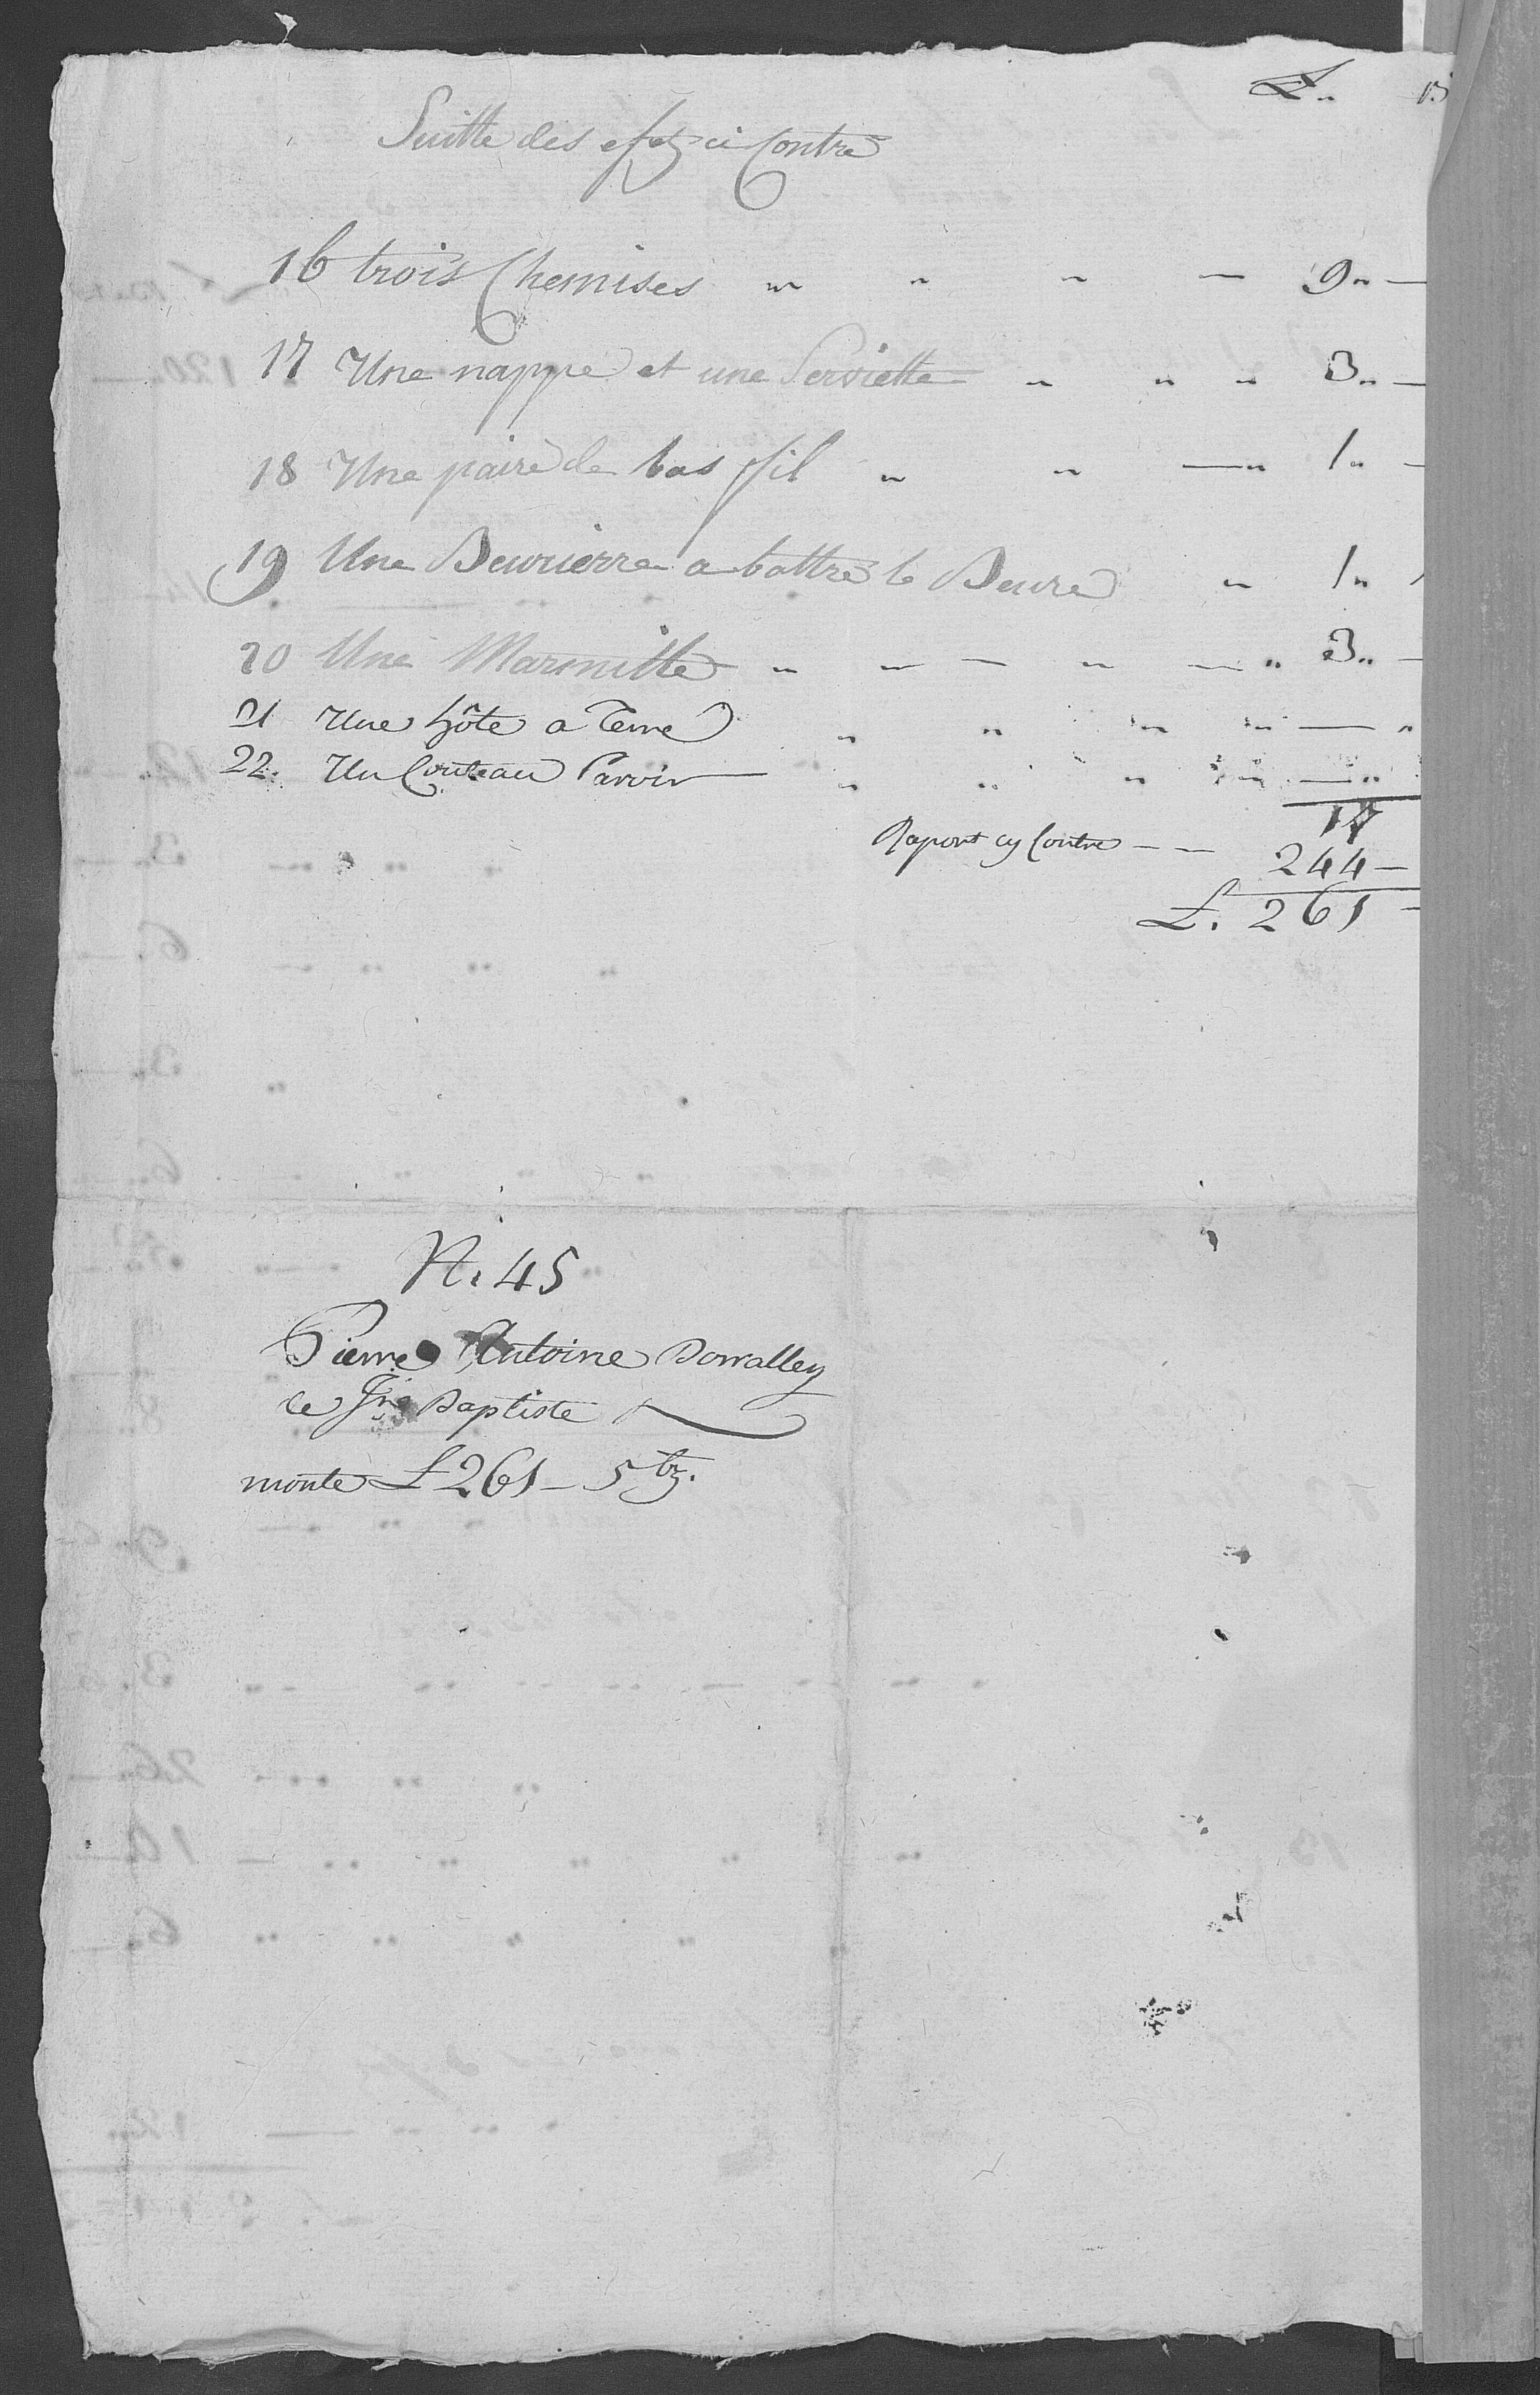 £.. B
Suitte des efetz ci Contre
16 trois Chemises " " " — 9" —
17 Une nappe et une Serviette " " " 3" —
18 Une paire de bas fil " " —" 1" —
19 Une Beurierre a battre le Beure " 1"
20 Une Marmitte " — — " — " 3" —
21 Une hôte a Terre " " " " — "
22. Un Couteau Paroir — " " " " —"
17
Raport cy Contre — — 244 —
£. 261 —
N. 45
Pierre Antoine Donalley
de Jn. Baptiste
monte £ 261 — 5 bz.